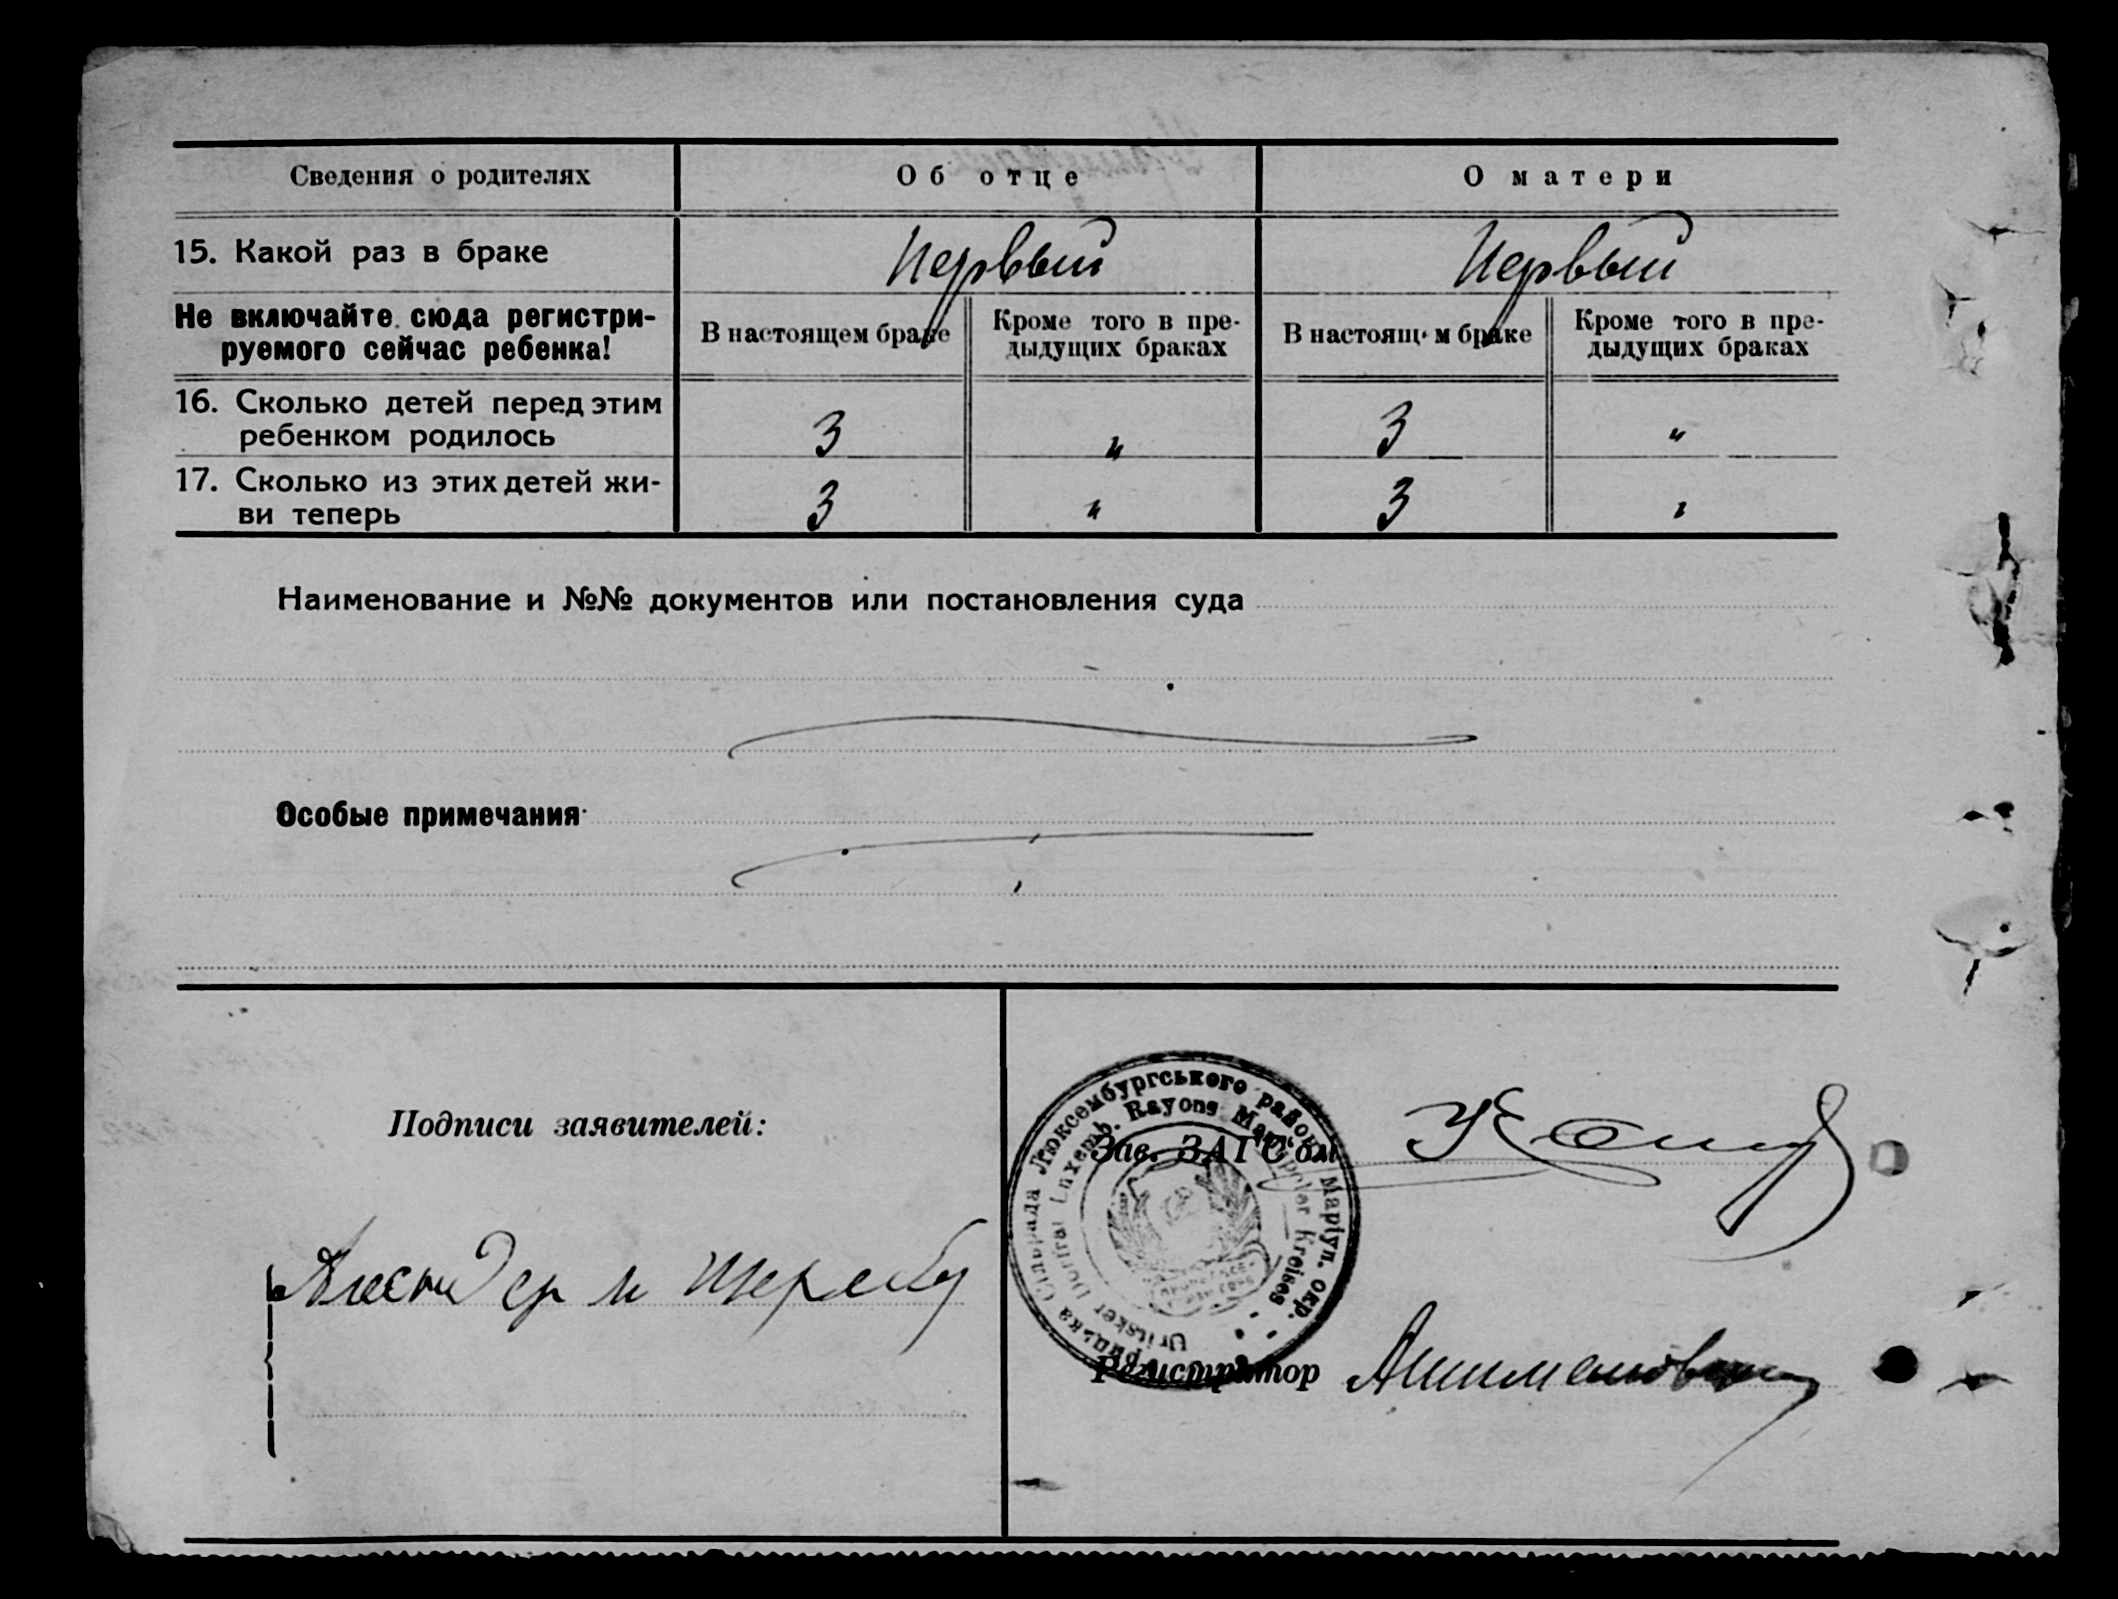 Сведения о родителях Об отце О матери
15. Какой раз в браке Первый Первый
Не включайте сюда регистри-
руемого сейчас ребенка!
В настоящем браке Кроме того в пре-
дыдущих браках В настоящ м браке Кроме того в пре-
дыдущих браках
16. Сколько детей перед этим
ребенком родилось 3 " 3 "
17. Сколько из этих детей жи-
ви теперь 3 " 3 "
Наименование и №№ документов или постановления суда
Особые примечания
Подписи заявителей:
Зав. ЗАГС'ом
Люксембургського району Маріуп. окр.
Сільрада
Uritsker Dorfrat Luxemb. Rayons Mariupoler Kreises
Регистратор